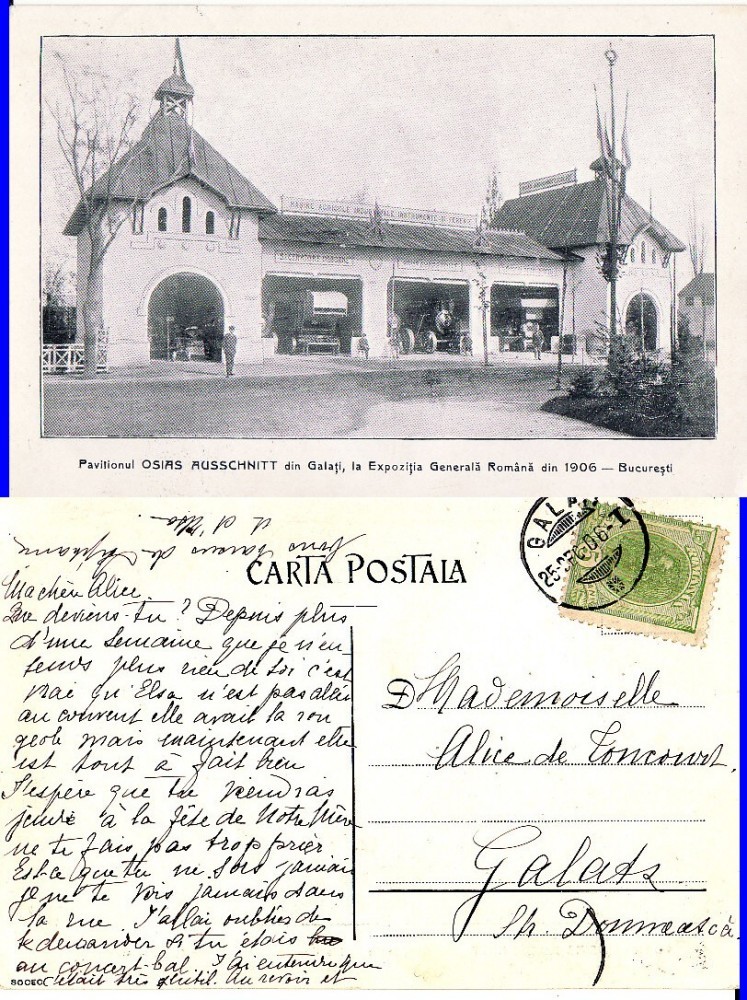 MAȘINE AGRICOLE INDUSTRIALE INSTRUMENTE ȘI FERERII
Pavilionul OSIAS AUSSCHNITT din Galați, la Expoziția Generală Română din 1906 — București
CARTA POSTALA
GALAȚI
Ma chère Alice
Que deviens-tu? Depuis plus
d'une semaine que je n'en
tends plus rien de toi c'est
vrai qu'Elsa n'est pas allée
au couvent elle avait la rou
geole mais maintenant elle
est tout à fait bien
J'espère que tu viendras
jeudi à la fête de Notre Mère
ne te fais pas trop prier
Est-ce que tu ne sors jamais
je ne te vois jamais dans
la rue. J'allai oublier de
te demander si tu étais
au concert-bal. J'ai entendu que
c'était très gentil. Au revoir et
SOCEC
D Mademoiselle
Alice de
Galatz
Str. Domnească